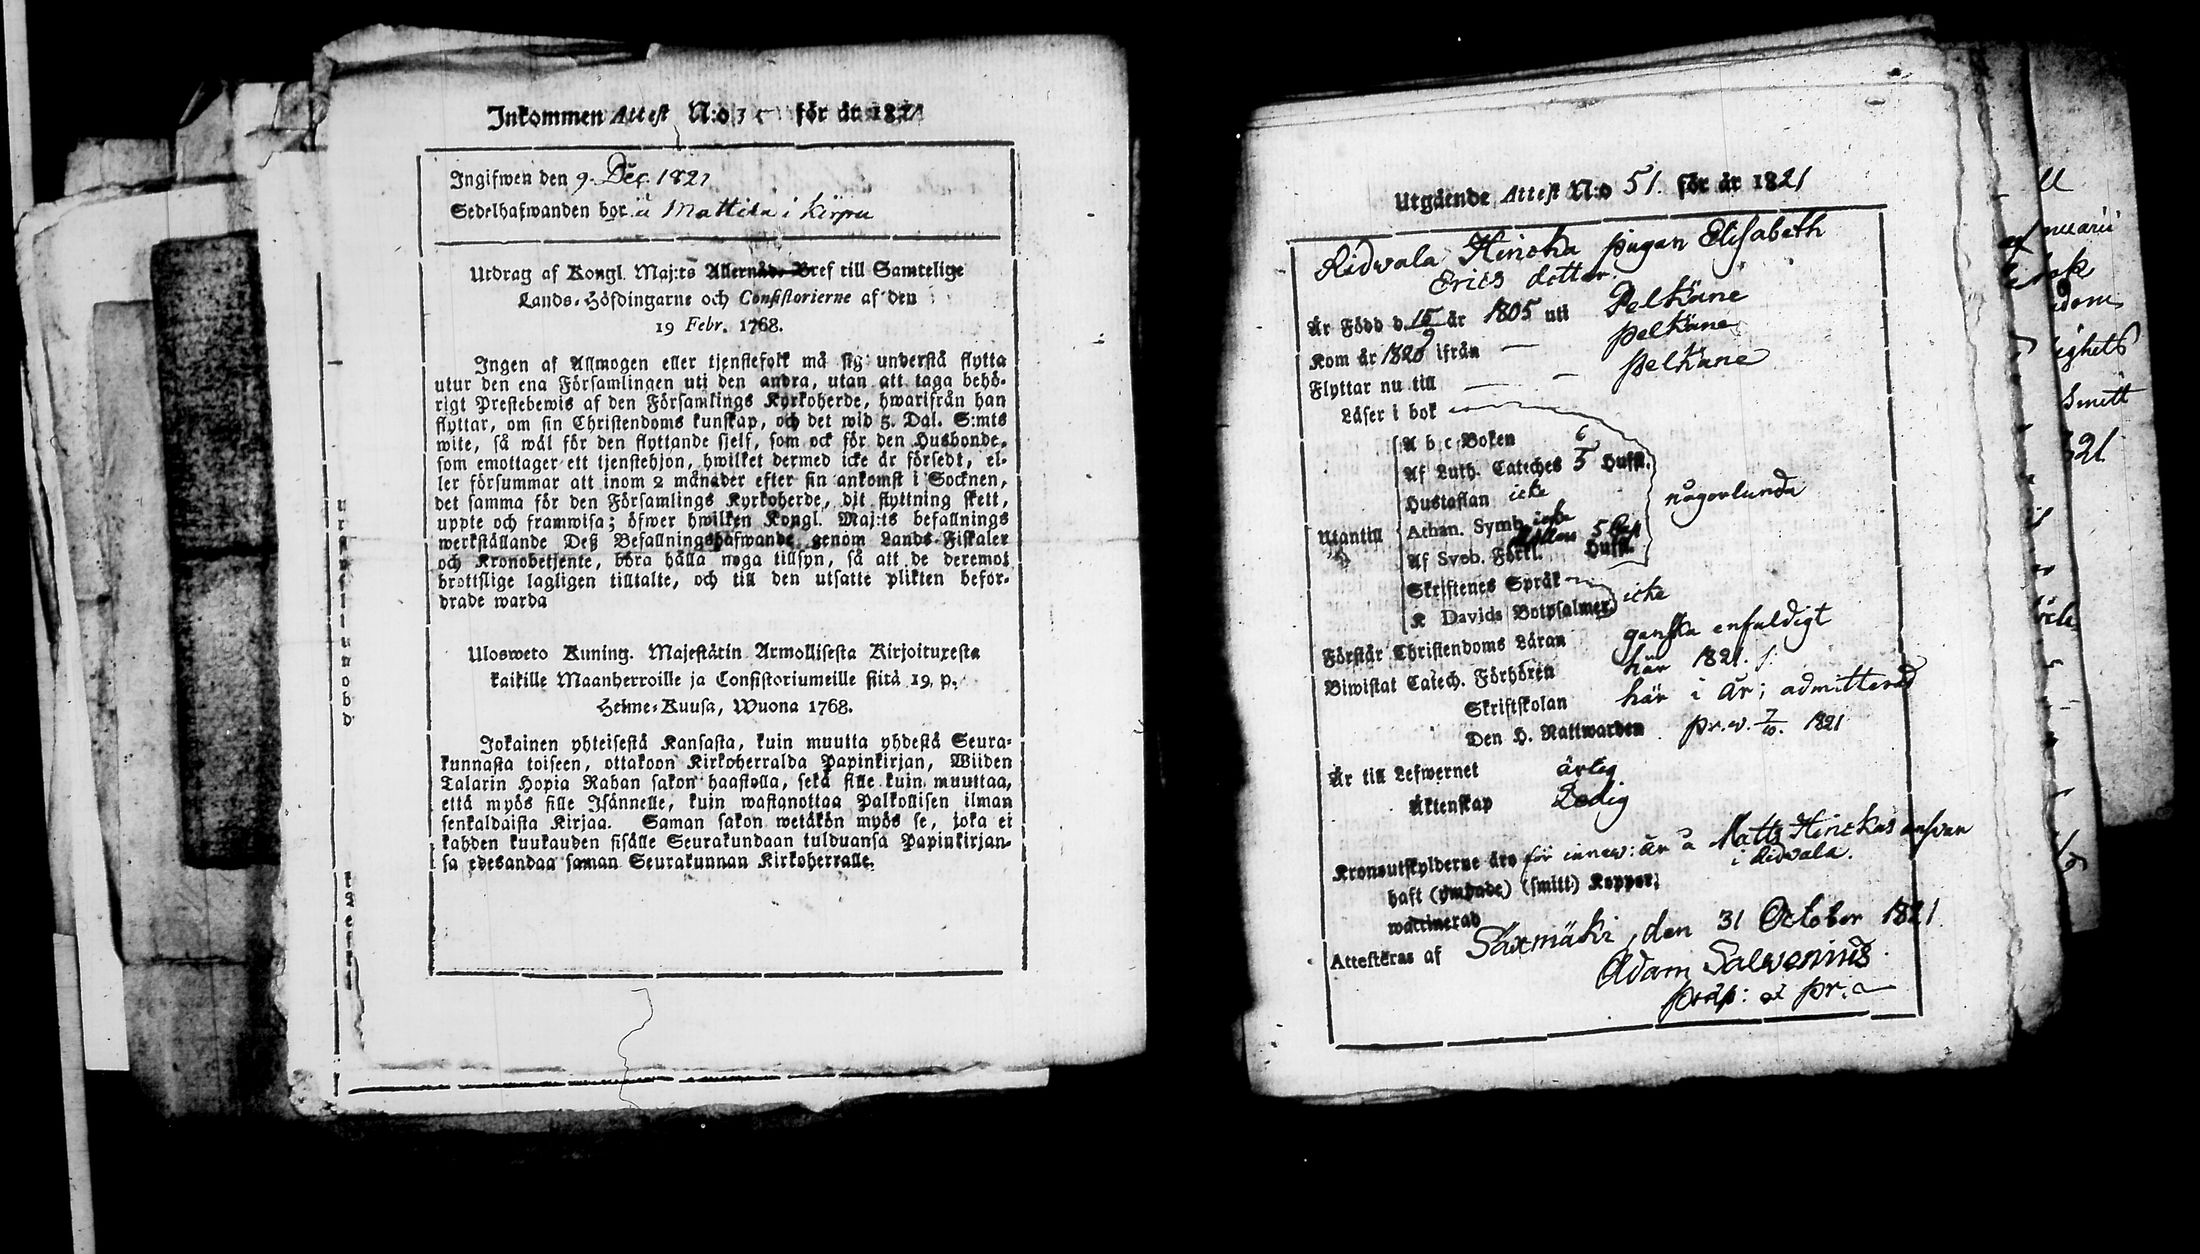 Inkommen Attest N:o för år 1821
Ingifwen den 9. Dec. 1821
Sedelhafwanden bor å Mattila i Kirpu
Utdrag af Kongl. Maj:ts Allernåd. Bref till Samtelige
Lands-Höfdingarne och Consistorierne af den
19 Febr. 1768.
Ingen af Allmogen eller tjenstefolk må sig understå flytta
utur den ena Församlingen uti den andra, utan att taga behö-
rigt Prestebewis af den Församlings Kyrkoherde, hwarifrån han
flyttar, om sin Christendoms kunskap, och det wid 5. Dal. S:mts
wite, så wäl för den flyttande sielf, som ock för den Husbonde,
som emottager ett tjenstehjon, hwilket dermed icke är försedt, el-
ler försummar att inom 2 månader efter sin ankomst i Socknen,
det samma för den Församlings Kyrkoherde, dit flyttning skett,
uppte och framwisa; öfwer hwilken Kongl. Maj:ts befallnings
werkställande Deß Befallningshafwande genom Lands-Fiskaler
och Kronobetjente, böra hålla noga tillsyn, så att de deremot
brottslige lagligen tilltalte, och till den utsatte plikten befor-
drade warda
Ulosweto Kuning. Majestätin Armollisesta Kirjoituxesta
kaikille Maanherroille ja Consistoriumeille siitä 19. p.
Helme-Kuusa, Wuona 1768.
Jokainen yhteisestä Kansasta, kuin muutta yhdestä Seura-
kunnasta toiseen, ottakoon Kirkoherralda Papinkirjan, Wiiden
Talarin Hopia Rahan sakon haastolla, sekä sille kuin muuttaa,
että myös sille Isännelle, kuin wastanottaa Palkollisen ilman
senkaldaista Kirjaa. Saman sakon wetäkön myös se, joka ei
kahden kuukauden sisälle Seurakundaan tulduansa Papinkirjan-
sa edesandaa saman Seurakunnan Kirkoherralle.
Utgående Attest N:o 51. för år 1821
Ridvala Hincka pigan Elisabeth
Erics dotter
Är Född d. 15/9 år 1805 uti Pelkäne
Kom år 1820 ifrån — Pelkäne
Flyttar nu till — — Pelkäne
Läser i bok
A b c Boken
Af Luth. Cateches 5 Hufst.
Hustaflan icke
någorlunda
Utantill
Athan. Symb. icke
Af Sveb. Förkl. 5 Hufst.
Skriftenes Språk
icke
K Davids Botpsalmer
Förstår Christendoms Läran ganska enfaldigt
Biwistat Catech. Förhören här 1821.
Skriftskolan här i år; admitterad
Den H. Nattwarden pr. v. 7/10. 1821
Är till Lefwernet ärlig
Äktenskap Ledig
Kronoutskylderne äro för innew: år å Matts Hinckas answar
i Ridvala.
haft (ympade) (smitt) Koppor,
waccinerad
Attesteras af Säxmäki, den 31 October 1821
Adam Salvenius
præp: et pr.